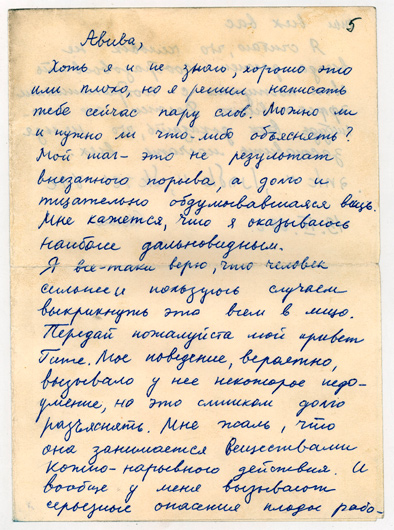 5
Авива,
Хоть я и не знаю, хорошо это
или плохо, но я решил написать
тебе сейчас пару слов. Можно ли
и нужно ли что-либо объяснять?
Мой шаг - это не результат
внезапного порыва, а долго и
тщательно обдумывавшаяся вещь.
Мне кажется, что я оказываюсь
наиболее дальновидным.
Я все-таки верю, что человек
сильнее и пользуюсь случаем
выкрикнуть это всем в лицо.
Передай пожалуйста мой привет
Гите. Мое поведение, вероятно,
вызывало у нее некоторое недо-
умение, но это слишком долго
разъяснять. Мне жаль, что
она занимается веществами
кожно-нарывного действия. И
вообще у меня вызывают
серьезные опасения плоды рабо-